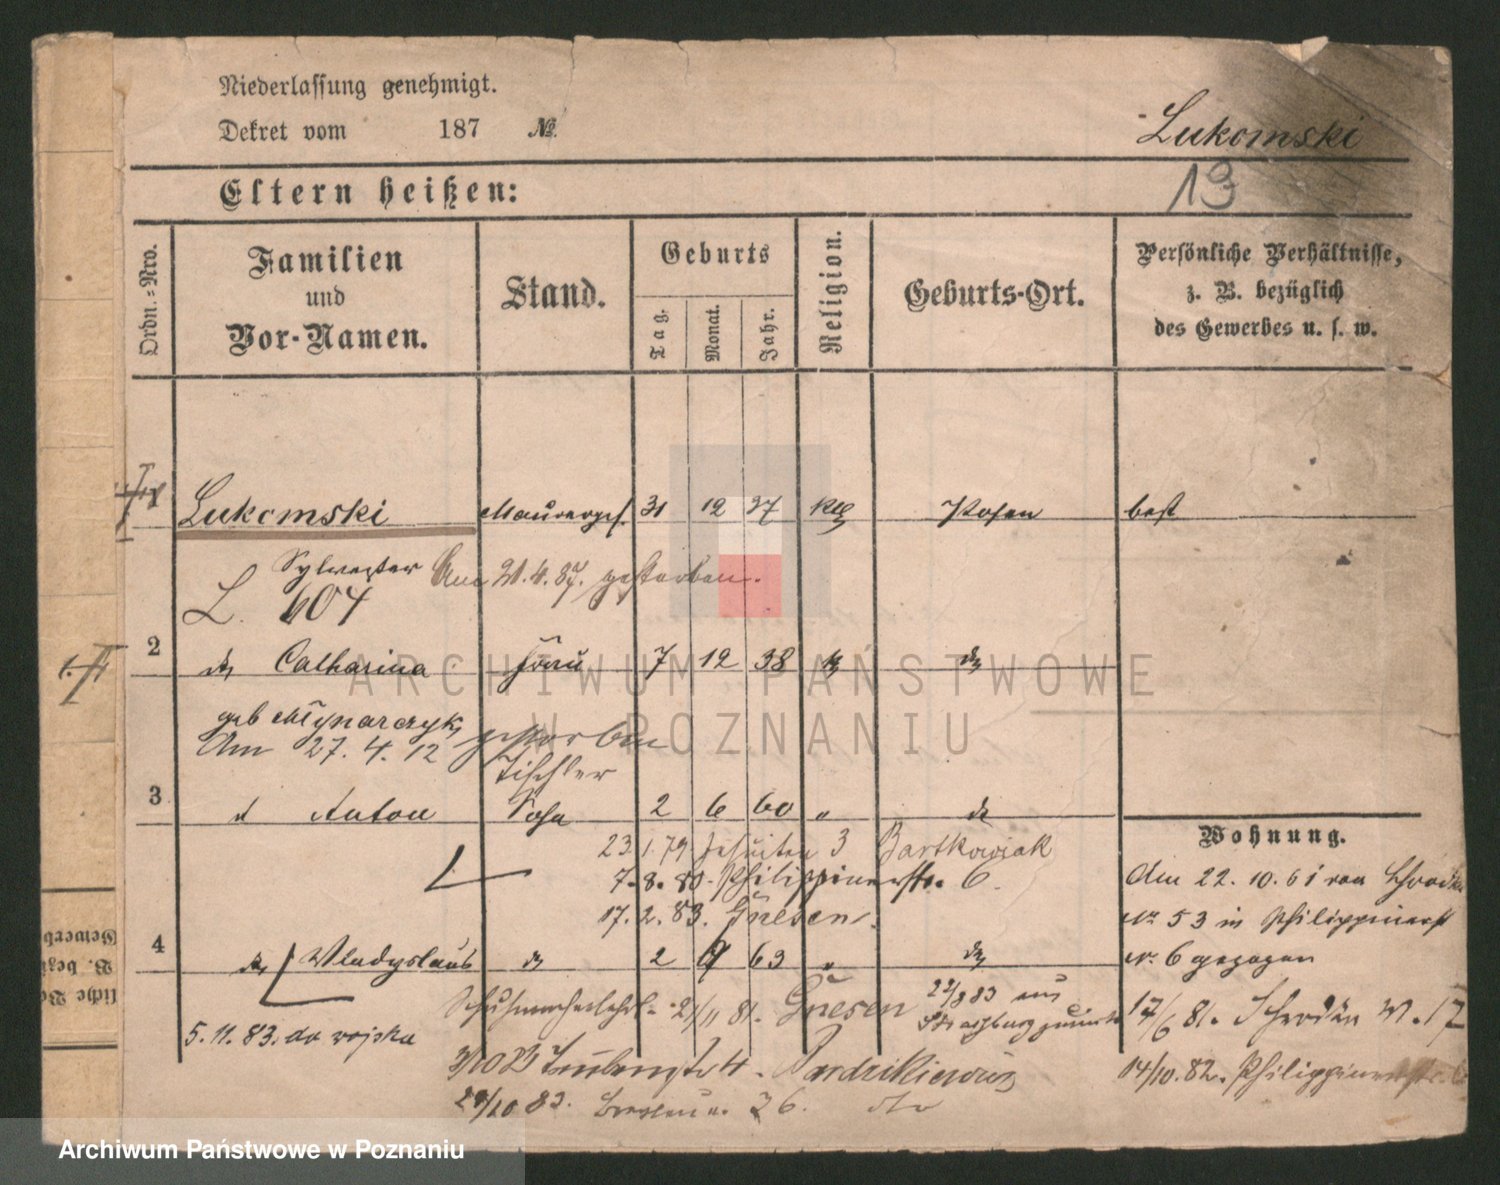 Niederlassung genehmigt.
Dekret vom 187 №
Lukomski
13
Eltern heißen:
Ordn.-Nro.
Familien
und
Vor-Namen.
Stand.
Geburts
Tag.
Monat.
Jahr.
Religion.
Geburts-Ort.
Persönliche Verhältnisse,
z. B. bezüglich
des Gewerbes u. s. w.
1 Lukomski Maurerges. 31 12 37 kth Posen best
Sylvester Am 21.4.87. gestorben.
L. 607
2 do Catharina Frau 7 12 38 do
geb Młynarczyk
Am 27. 4. 12 gestorben
Tischler
3 d Anton Sohn 2 6 60 " do
Wohnung.
23.1.79 Jesuiten 3 Bartkowiak
7.8.80. Philippinerstr. 6.
17.2.83. Gnesen.
Am 22. 10. 61 von Schrodka
Nr 53 in Philippinerst
Nr. 6 gezogen
4 do Wladyslaus do 2 9 63 " do
Schuhmacherlehrl. 2/11 81. Gnesen 22/8 83 aus
17/6 81. Schrodka N. 17
5.11.83. do wojska
14/10. 82. Philippinerstr. 6
29/10 83. Breslauer. 36. dto
Gewerb
z. B. bezü
liche Ve
Archiwum Państwowe w Poznaniu
ARCHIWUM PAŃSTWOWE
W POZNANIU